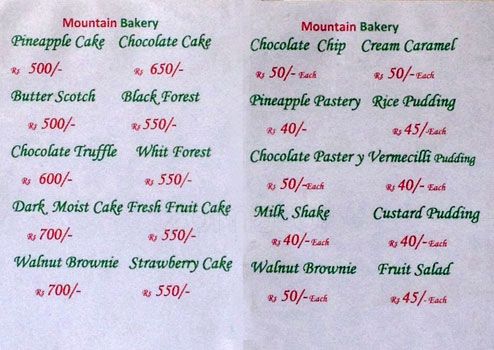 Mountain Bakery
Pineapple Cake Chocolate Cake
Rs 500/- Rs 650/-
Butter Scotch Black Forest
Rs 500/- Rs 550/-
Chocolate Truffle Whit Forest
Rs 600/- Rs 550/-
Dark Moist Cake Fresh Fruit Cake
Rs 700/- Rs 550/-
Walnut Brownie Strawberry Cake
Rs 700/- Rs 550/-
Mountain Bakery
Chocolate Chip Cream Caramel
Rs 50/- Each Rs 50/- Each
Pineapple Pastery Rice Pudding
Rs 40/- Rs 45/- Each
Chocolate Paster y Vermecilli Pudding
Rs 50/- Each Rs 40/- Each
Milk Shake Custard Pudding
Rs 40/- Each Rs 40/- Each
Walnut Brownie Fruit Salad
Rs 50/- Each Rs 45/- Each